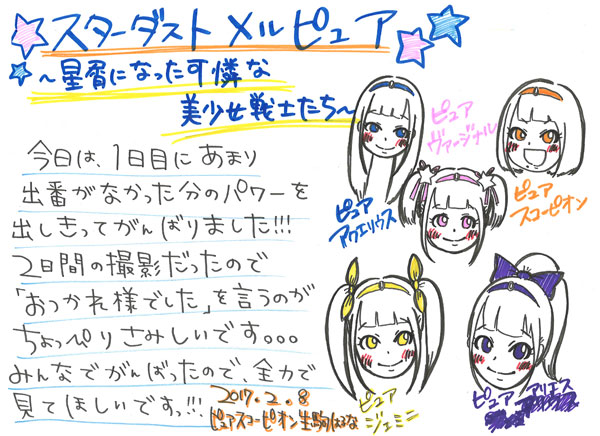 スターダスト メルピュア
～星屑になった可憐な
美少女戦士たち～
今日は、1日目にあまり
出番がなかった分のパワーを
出しきってがんばりました!!!
2日間の撮影だったので
「おつかれ様でした」を言うのが
ちょっぴりさみしいです。。。
みんなでがんばったので、全力で
見てほしいですっ!!!
2017.2.8
ピュアスコーピオン生駒はるな
ピュア
ヴァージナル
ピュア
スコーピオン
ピュア
アクエリウス
ピュア
ジェミニ
ピュア アリエス